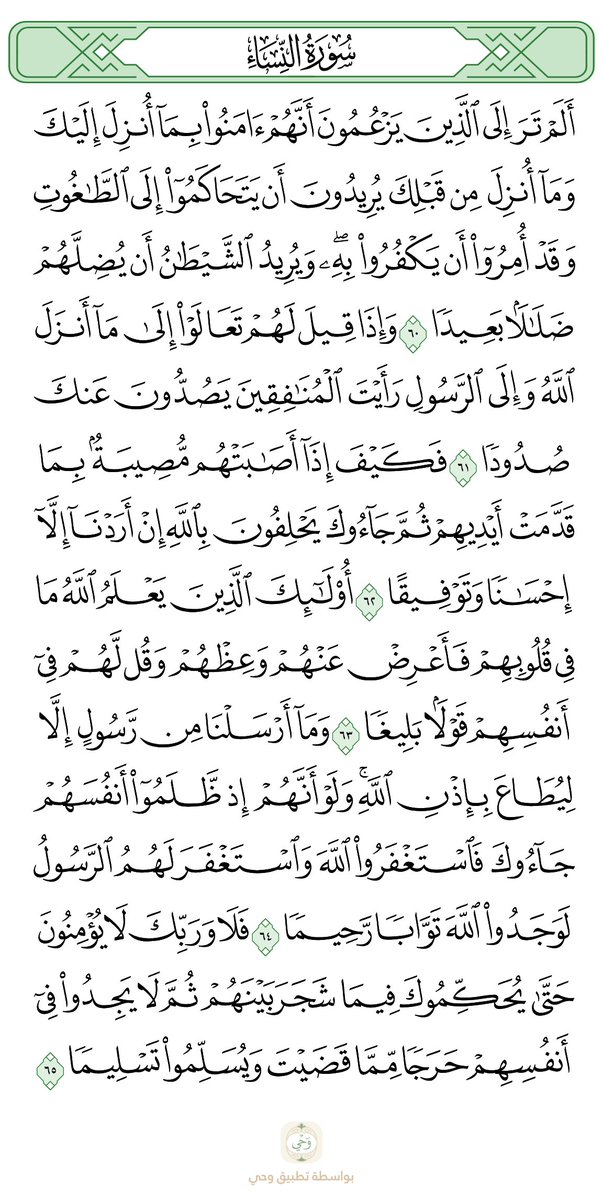 سُورَةُ النِّسَاءِ
أَلَمْ تَرَ إِلَى ٱلَّذِينَ يَزْعُمُونَ أَنَّهُمْ ءَامَنُوا۟ بِمَآ أُنزِلَ إِلَيْكَ
وَمَآ أُنزِلَ مِن قَبْلِكَ يُرِيدُونَ أَن يَتَحَاكَمُوٓا۟ إِلَى ٱلطَّٰغُوتِ
وَقَدْ أُمِرُوٓا۟ أَن يَكْفُرُوا۟ بِهِۦۖ وَيُرِيدُ ٱلشَّيْطَٰنُ أَن يُضِلَّهُمْ
ضَلَٰلًۢا بَعِيدًا ٦٠ وَإِذَا قِيلَ لَهُمْ تَعَالَوْا۟ إِلَىٰ مَآ أَنزَلَ
ٱللَّهُ وَإِلَى ٱلرَّسُولِ رَأَيْتَ ٱلْمُنَٰفِقِينَ يَصُدُّونَ عَنكَ
صُدُودًا ٦١ فَكَيْفَ إِذَآ أَصَٰبَتْهُم مُّصِيبَةٌۢ بِمَا
قَدَّمَتْ أَيْدِيهِمْ ثُمَّ جَآءُوكَ يَحْلِفُونَ بِٱللَّهِ إِنْ أَرَدْنَآ إِلَّآ
إِحْسَٰنًا وَتَوْفِيقًا ٦٢ أُو۟لَٰٓئِكَ ٱلَّذِينَ يَعْلَمُ ٱللَّهُ مَا
فِى قُلُوبِهِمْ فَأَعْرِضْ عَنْهُمْ وَعِظْهُمْ وَقُل لَّهُمْ فِىٓ
أَنفُسِهِمْ قَوْلًۢا بَلِيغًا ٦٣ وَمَآ أَرْسَلْنَا مِن رَّسُولٍ إِلَّا
لِيُطَاعَ بِإِذْنِ ٱللَّهِۚ وَلَوْ أَنَّهُمْ إِذ ظَّلَمُوٓا۟ أَنفُسَهُمْ
جَآءُوكَ فَٱسْتَغْفَرُوا۟ ٱللَّهَ وَٱسْتَغْفَرَ لَهُمُ ٱلرَّسُولُ
لَوَجَدُوا۟ ٱللَّهَ تَوَّابًا رَّحِيمًا ٦٤ فَلَا وَرَبِّكَ لَا يُؤْمِنُونَ
حَتَّىٰ يُحَكِّمُوكَ فِيمَا شَجَرَ بَيْنَهُمْ ثُمَّ لَا يَجِدُوا۟ فِىٓ
أَنفُسِهِمْ حَرَجًا مِّمَّا قَضَيْتَ وَيُسَلِّمُوا۟ تَسْلِيمًا ٦٥
وَحْي
بواسطة تطبيق وحي